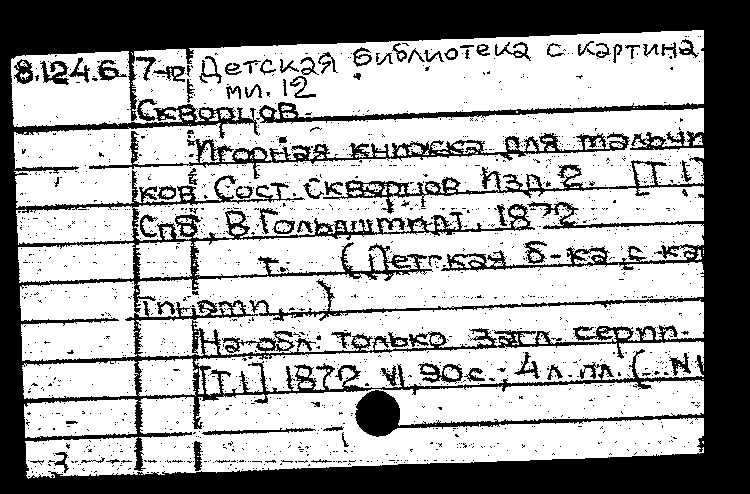 8.124.6 7-12 Детская библиотека с картина-
ми. 12
Скворцов.
Игорная книжка для мальчи
ков. Сост. Скворцов. Изд. 2. [Т.1]
Спб, В. Гольдштидт, 1872
т. (Детская б-ка с кар
тинами, ...)
На обл: только загл. серии.
[Т.1]. 1872. VI, 90 с.; 4 л. пл. (...N1
3